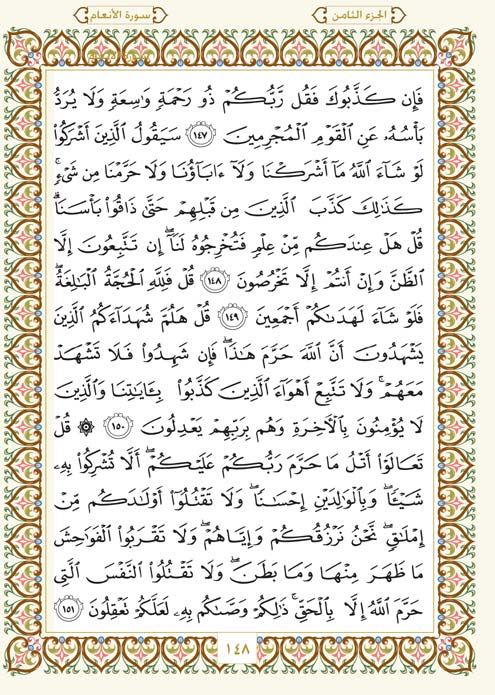 الجزء الثامن
سورة الأنعام
فَإِن كَذَّبُوكَ فَقُل رَّبُّكُمْ ذُو رَحْمَةٍ وَٰسِعَةٍ وَلَا يُرَدُّ
بَأْسُهُۥ عَنِ ٱلْقَوْمِ ٱلْمُجْرِمِينَ ١٤٧ سَيَقُولُ ٱلَّذِينَ أَشْرَكُوا۟
لَوْ شَآءَ ٱللَّهُ مَآ أَشْرَكْنَا وَلَآ ءَابَآؤُنَا وَلَا حَرَّمْنَا مِن شَىْءٍ ۚ
كَذَٰلِكَ كَذَّبَ ٱلَّذِينَ مِن قَبْلِهِمْ حَتَّىٰ ذَاقُوا۟ بَأْسَنَا ۗ
قُلْ هَلْ عِندَكُم مِّنْ عِلْمٍ فَتُخْرِجُوهُ لَنَآ ۖ إِن تَتَّبِعُونَ إِلَّا
ٱلظَّنَّ وَإِنْ أَنتُمْ إِلَّا تَخْرُصُونَ ١٤٨ قُلْ فَلِلَّهِ ٱلْحُجَّةُ ٱلْبَٰلِغَةُ ۖ
فَلَوْ شَآءَ لَهَدَىٰكُمْ أَجْمَعِينَ ١٤٩ قُلْ هَلُمَّ شُهَدَآءَكُمُ ٱلَّذِينَ
يَشْهَدُونَ أَنَّ ٱللَّهَ حَرَّمَ هَٰذَا ۖ فَإِن شَهِدُوا۟ فَلَا تَشْهَدْ
مَعَهُمْ ۚ وَلَا تَتَّبِعْ أَهْوَآءَ ٱلَّذِينَ كَذَّبُوا۟ بِـَٔايَٰتِنَا وَٱلَّذِينَ
لَا يُؤْمِنُونَ بِٱلْـَٔاخِرَةِ وَهُم بِرَبِّهِمْ يَعْدِلُونَ ١٥٠ ۞ قُلْ
تَعَالَوْا۟ أَتْلُ مَا حَرَّمَ رَبُّكُمْ عَلَيْكُمْ ۖ أَلَّا تُشْرِكُوا۟ بِهِۦ
شَيْـًٔا ۖ وَبِٱلْوَٰلِدَيْنِ إِحْسَٰنًا ۖ وَلَا تَقْتُلُوٓا۟ أَوْلَٰدَكُم مِّنْ
إِمْلَٰقٍ ۖ نَّحْنُ نَرْزُقُكُمْ وَإِيَّاهُمْ ۖ وَلَا تَقْرَبُوا۟ ٱلْفَوَٰحِشَ
مَا ظَهَرَ مِنْهَا وَمَا بَطَنَ ۖ وَلَا تَقْتُلُوا۟ ٱلنَّفْسَ ٱلَّتِى
حَرَّمَ ٱللَّهُ إِلَّا بِٱلْحَقِّ ۚ ذَٰلِكُمْ وَصَّىٰكُم بِهِۦ لَعَلَّكُمْ تَعْقِلُونَ ١٥١
١٤٨